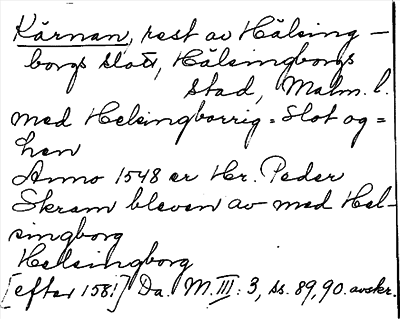 Kärnan, rest av Hälsing-
borgs slott, Hälsingborgs
stad, Malm. l.
med Helsingborrig = Slot og =
hen
Anno 1548 er Hr. Peder
Skram bleven av med Hel-
singborg
Helsingborg
[efter 158!] Da. M. III: 3, ss. 89, 90. avskr.